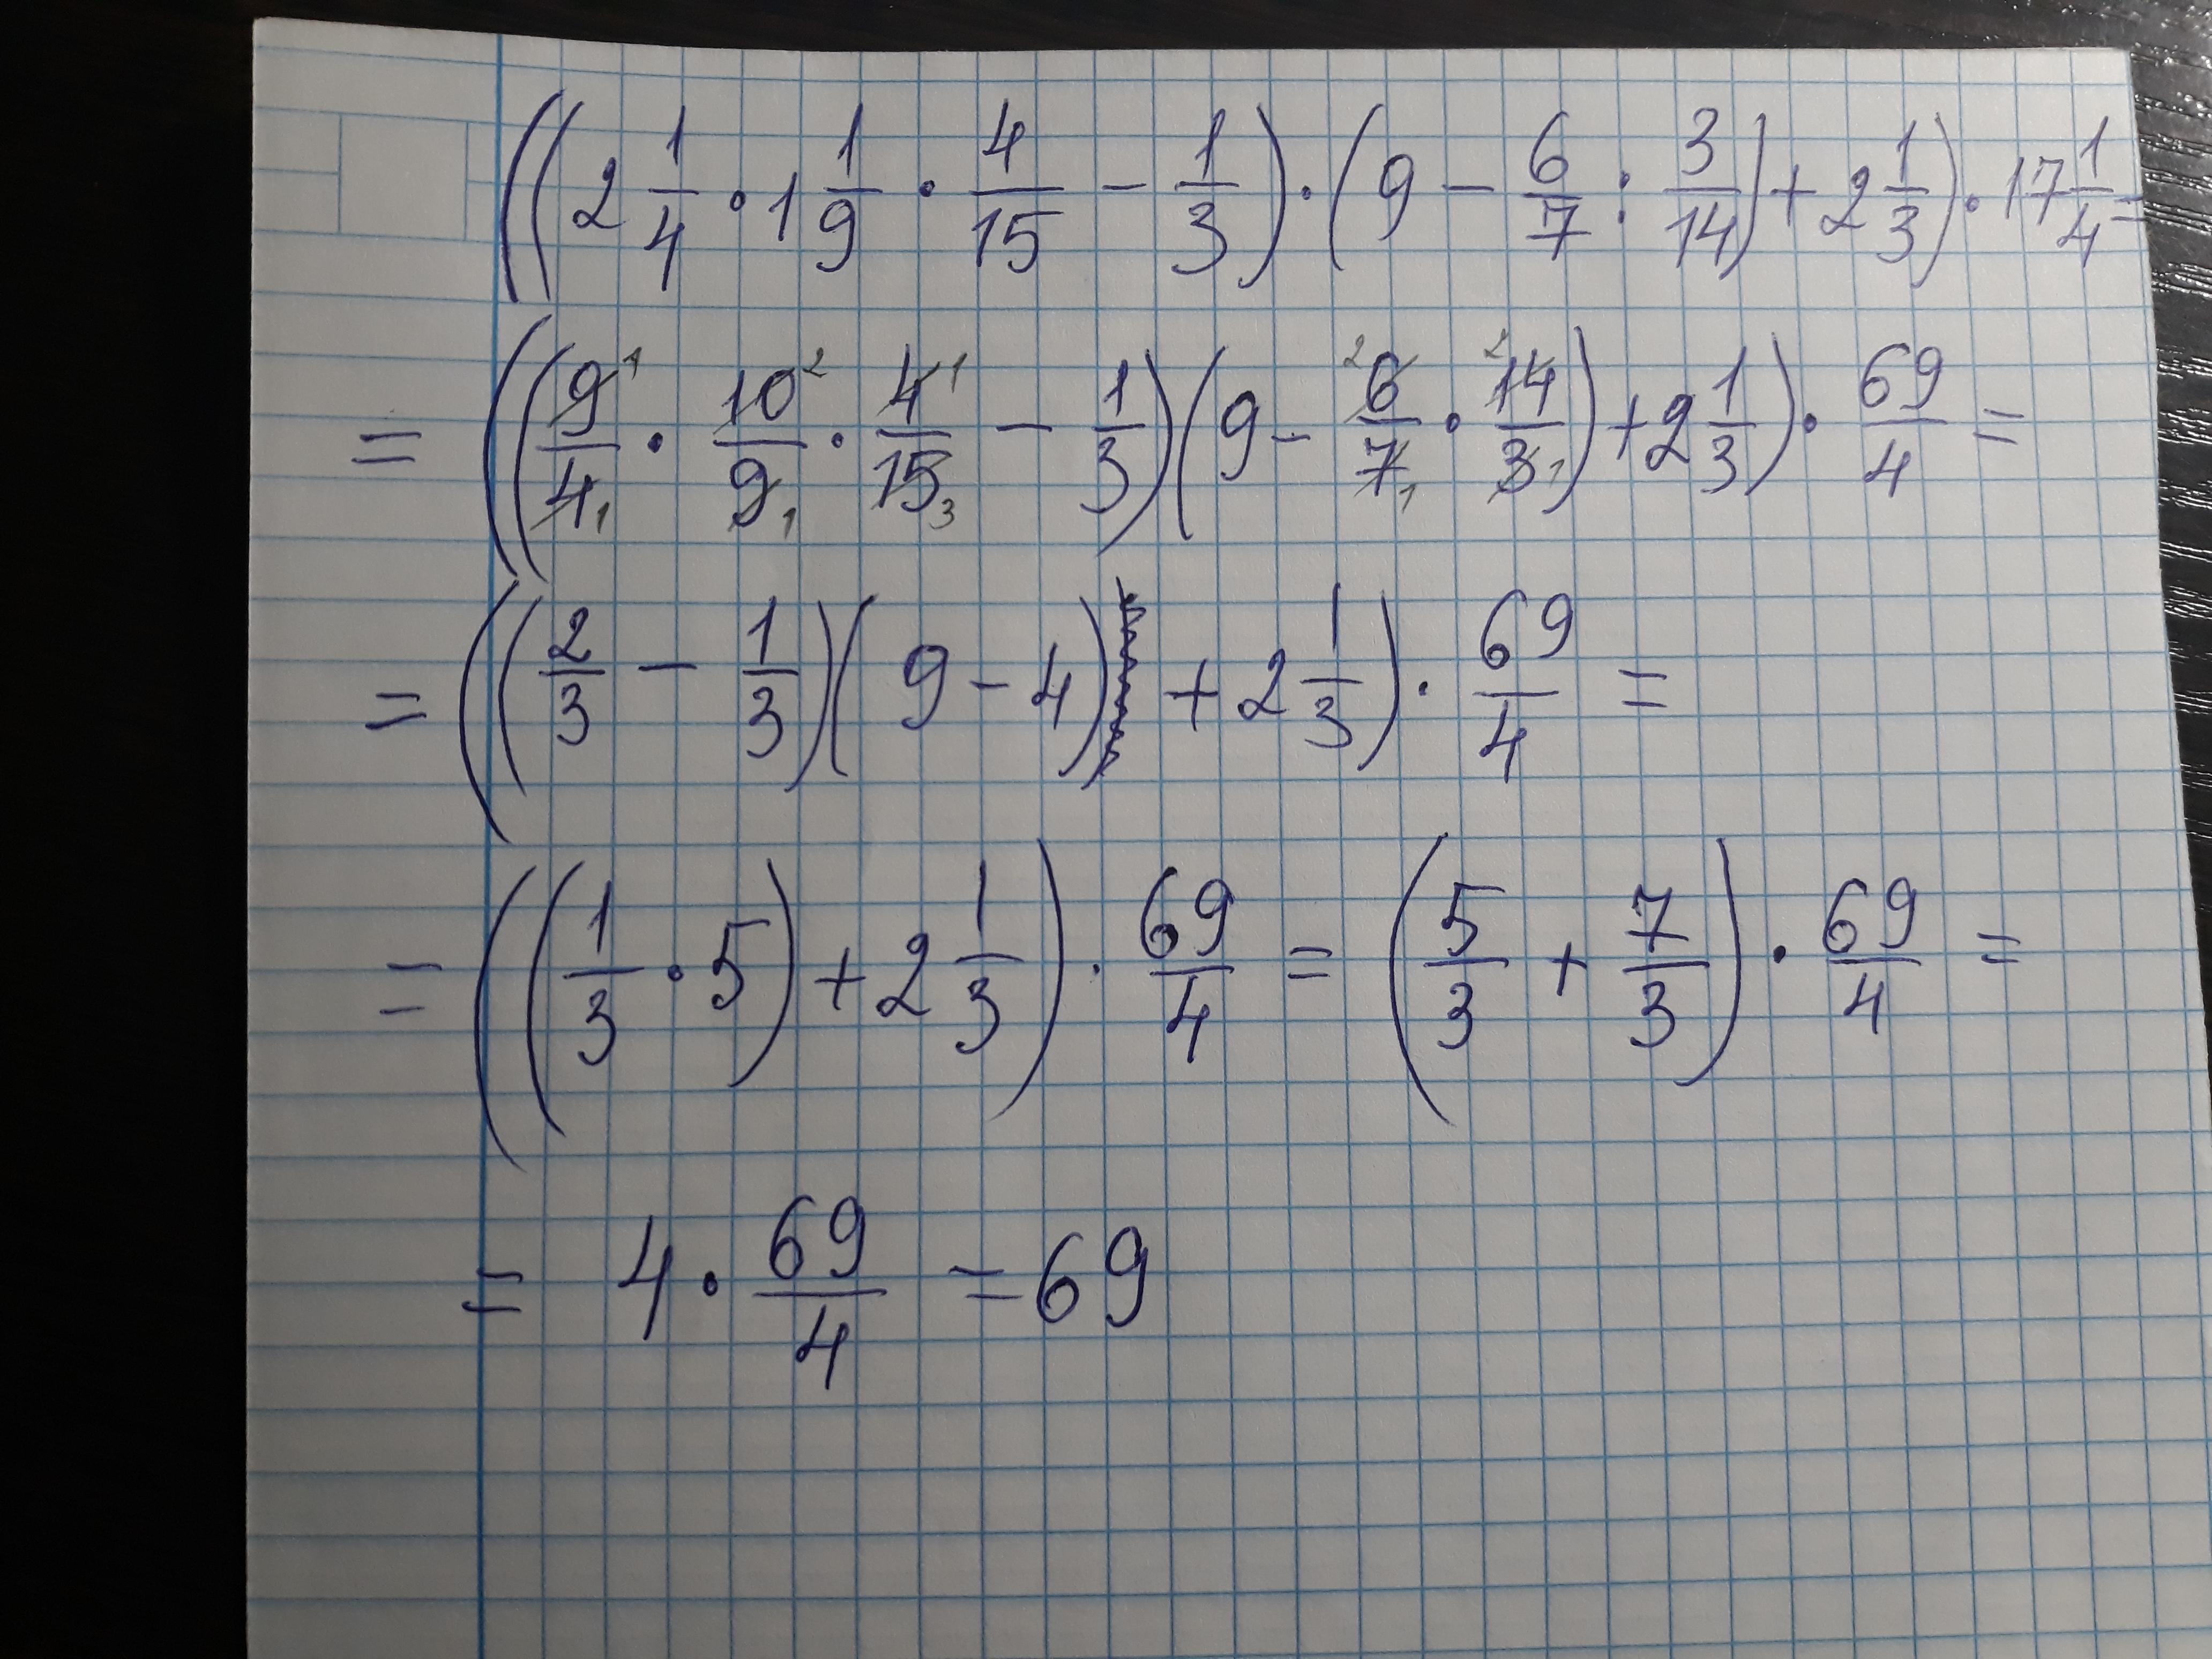 ((2 1/4 · 1 1/9 · 4/15 − 1/3) · (9 − 6/7 : 3/14) + 2 1/3) · 17 1/4 =
= ((9¹/4₁ · 10²/9₁ · 4¹/15₃ − 1/3)(9 − ²6/7₁ · ²14/3₁) + 2 1/3) · 69/4 =
= ((2/3 − 1/3)(9 − 4) + 2 1/3) · 69/4 =
= ((1/3 · 5) + 2 1/3) · 69/4 = (5/3 + 7/3) · 69/4 =
= 4 · 69/4 = 69